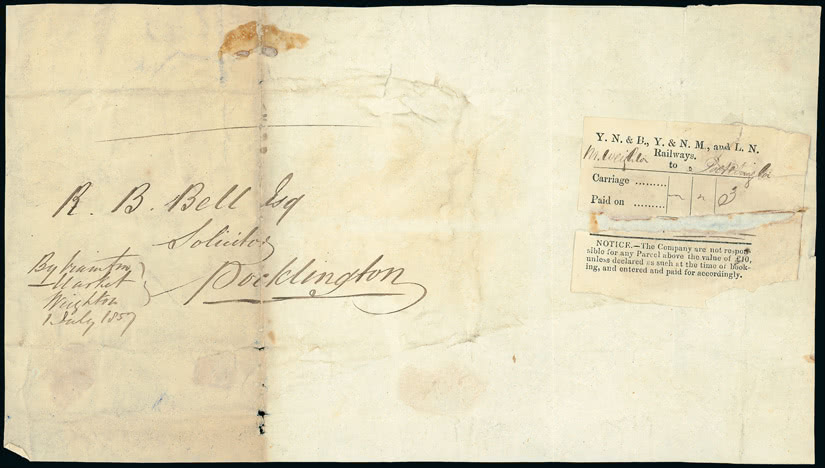 R. B. Bell Esq
Solicitor
Pocklington
By train from
Market
Weighton
1 July 1857
Y. N. & B., Y. & N. M., and L. N.
Railways.
M. Weighton to Pocklington
Carriage .........
Paid on ......... 3
NOTICE.—The Company are not respon-
sible for any Parcel above the value of £10,
unless declared as such at the time of book-
ing, and entered and paid for accordingly.